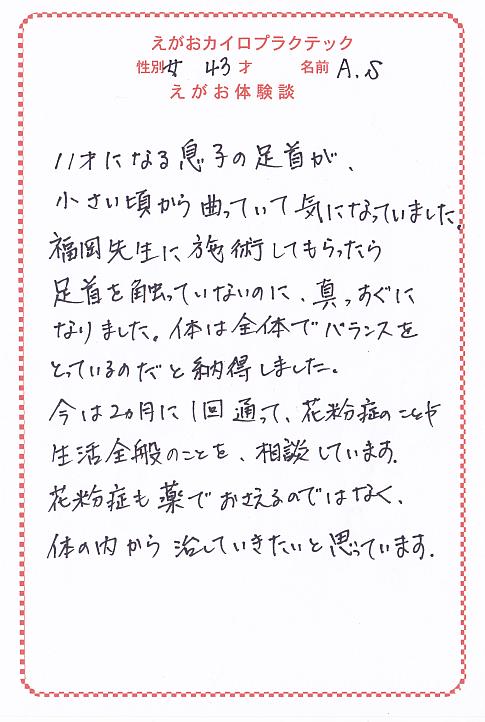 えがおカイロプラクテック
性別 女 43 才 名前 A.S
えがお体験談
11才になる息子の足首が、
小さい頃から曲っていて気になっていました。
福岡先生に施術してもらったら
足首を触っていないのに、真っすぐに
なりました。体は全体でバランスを
とっているのだと納得しました。
今は2ヵ月に1回通って、花粉症のことや
生活全般のことを、相談しています。
花粉症も薬でおさえるのではなく、
体の内から治していきたいと思っています.